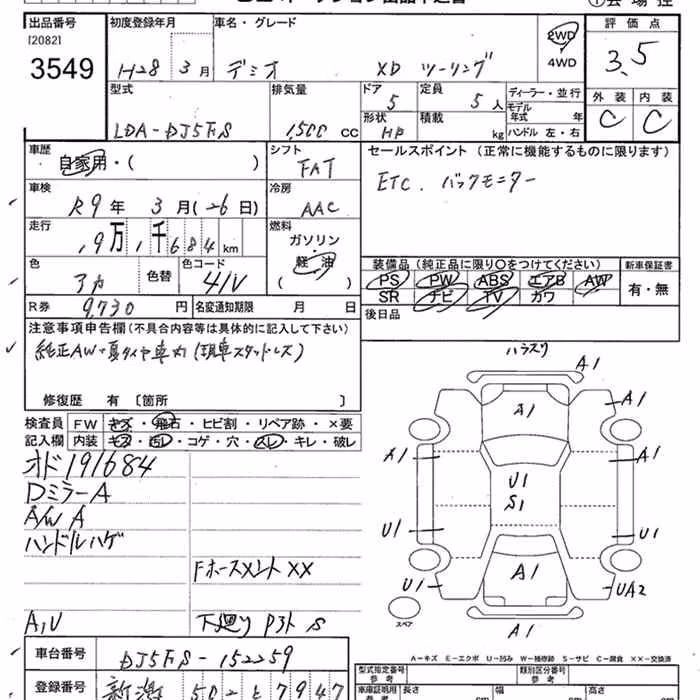 出品番号 初度登録年月 車名・グレード 2WD 4WD 評価点
120821
3549 H28 3月 デミオ XD ツーリング 3.5
型式 排気量 ドア 5 定員 5人 ディーラー・並行 外装 内装
LDA-DJ5FS 1,500 cc 形状 HB 積載 kg モデル年式 年 C C
ハンドル 左・右
車歴 シフト セールスポイント(正常に機能するものに限ります)
自家用・( ) FAT
ETC. バックモニター
車検 冷房
R9年 3月(26日) AAC
走行 燃料
19万1千684km ガソリン・軽油 ( )
色 色替 色コード
アカ 41V
装備品(純正品に限り〇をつけてください) 新車保証書
PS PW ABS エアB AW 有・無
SR ナビ TV カワ
R券 9,730円 名変通知期限 月 日 後日品
注意事項申告欄(不具合内容等は具体的に記入して下さい)
純正AW・夏タイヤ車内(現車スタッドレス)
修復歴 有〔箇所 〕
検査員記入欄 FW キズ・飛石・ヒビ割・リペア跡・×要
内装 キズ・汚レ・コゲ・穴・スレ・キレ・破レ
オド191684
Dミラー A
A/W A
ハンドルハゲ
Fホースメント XX
A,U 下廻り S
A1
A1
A1
A1
A1
U1
S1
U1
U1
U1
A1
UA2
A1
スペア
A-キズ E-エクボ U-凹み W-補修跡 S-サビ C-腐食 XX-交換済
車台番号 DJ5FS-152259
型式指定番号 参考 類別区分番号 参考
登録番号 新潟 502 と 7947
車庫証明用 参考 長さ cm 幅 cm 高さ cm